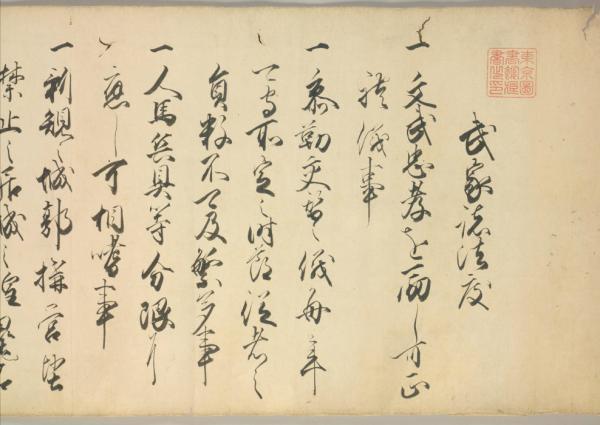 東京圖
書館藏
書之印
武家諸法度
一 文武忠孝を励し可正
禮儀事
一 参勤交替之儀毎年
可守所定之時節従者之
員数不可及繁多事
一 人馬兵具等分限に
應し可相嗜事
一 新規之城郭搆営堅
禁止之居城之隍塁石